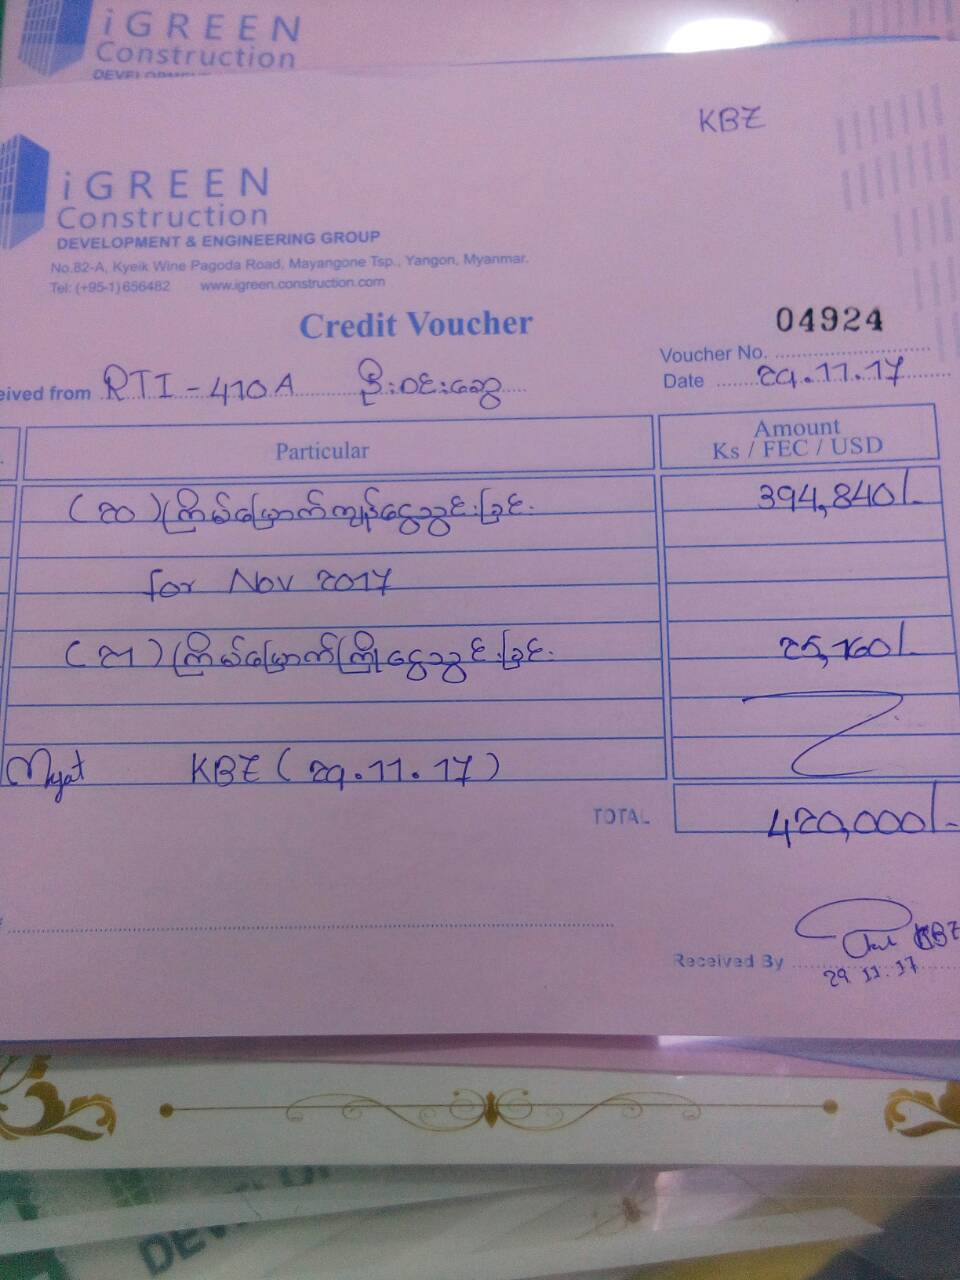 iGREEN
Construction
KBZ
iGREEN
Construction
DEVELOPMENT & ENGINEERING GROUP
No.82-A, Kyeik Wine Pagoda Road, Mayangone Tsp., Yangon, Myanmar.
Tel: (+95-1) 656482 www.igreen.construction.com
Credit Voucher
04924
Voucher No.
eived from RTI-410A ဦးဝင်းဆွေ
Date 29.11.17
Particular
Amount
Ks / FEC / USD
(၁၀) ကြိမ်မြောက်ကျန်ငွေသွင်းခြင်း 394,840/-
for Nov 2017
(၁၁) ကြိမ်မြောက်ကြိုငွေသွင်းခြင်း 25,160/-
Myat KBZ (29.11.17)
TOTAL 420,000/-
KBZ
Received By
29.11.17